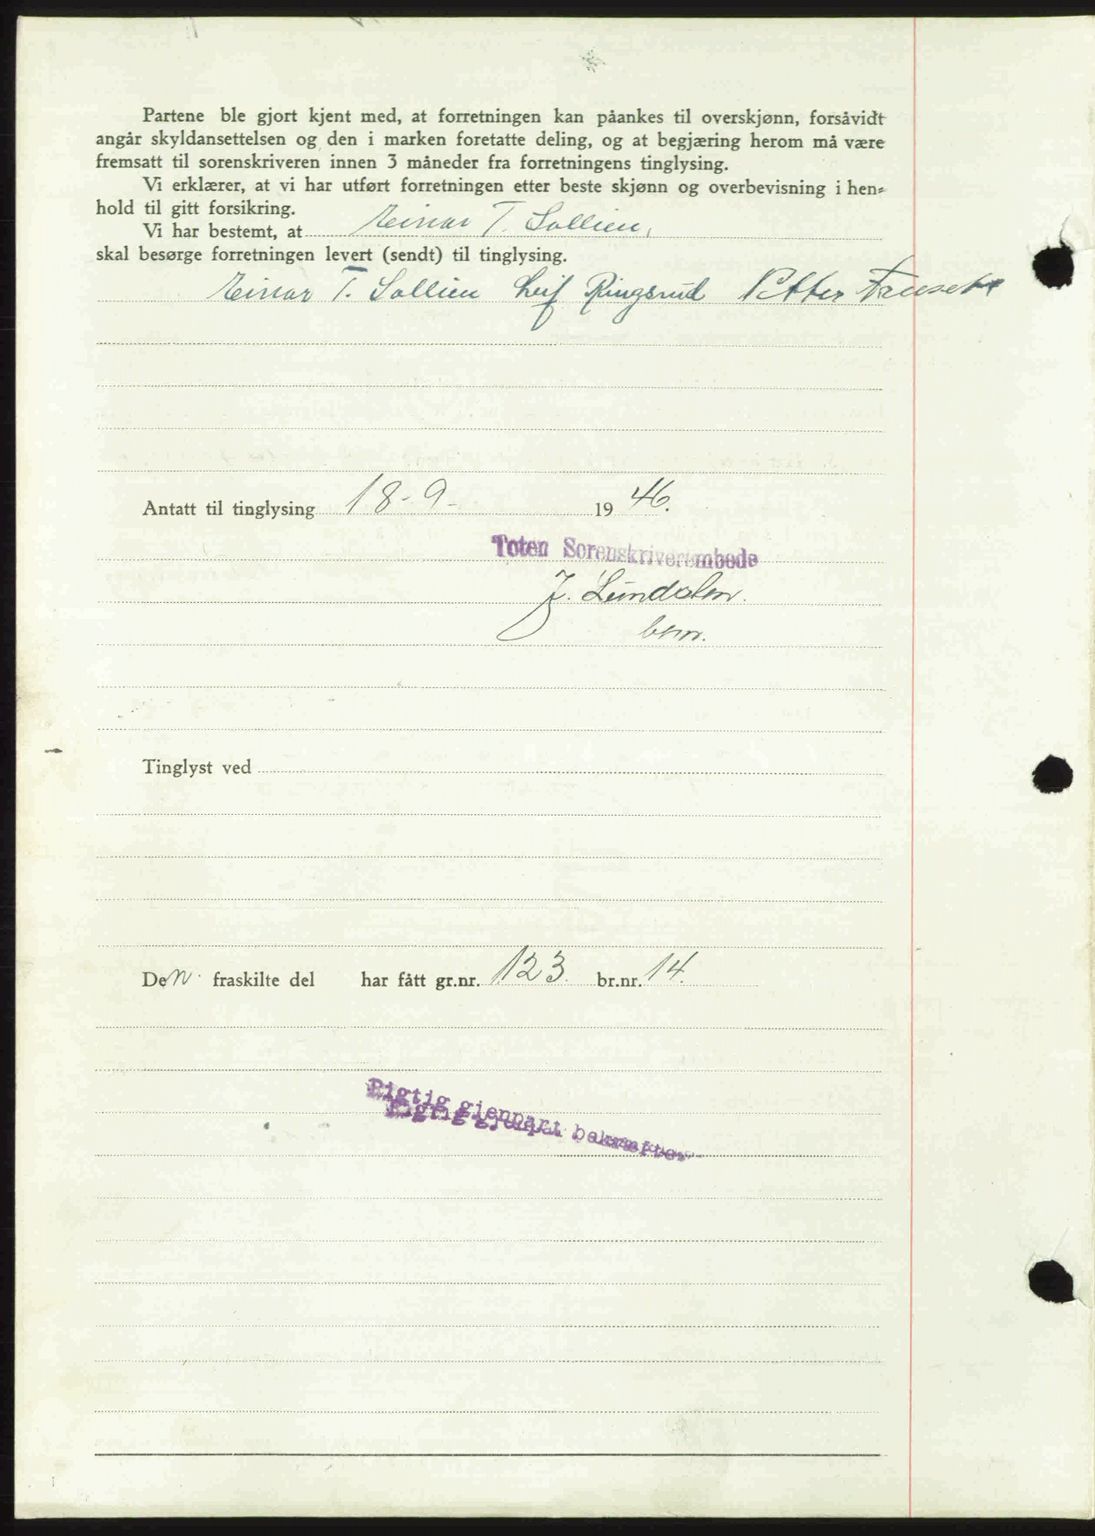 Partene ble gjort kjent med, at forretningen kan påankes til overskjønn, forsåvidt
angår skyldansettelsen og den i marken foretatte deling, og at begjæring herom må være
fremsatt til sorenskriveren innen 3 måneder fra forretningens tinglysing.
Vi erklærer, at vi har utført forretningen etter beste skjønn og overbevisning i hen-
hold til gitt forsikring.
Vi har bestemt, at Einar T. Sollien,
skal besørge forretningen levert (sendt) til tinglysing.
Einar T. Sollien Leif Ringsrud Petter
Antatt til tinglysing 18-9- 1946.
Toten Sorenskriverembede
J. Lundalen.
Tinglyst ved
Den fraskilte del har fått gr.nr. 123 br.nr. 14.
Rigtig gjenpart bekræftes
Rigtig gjenpart